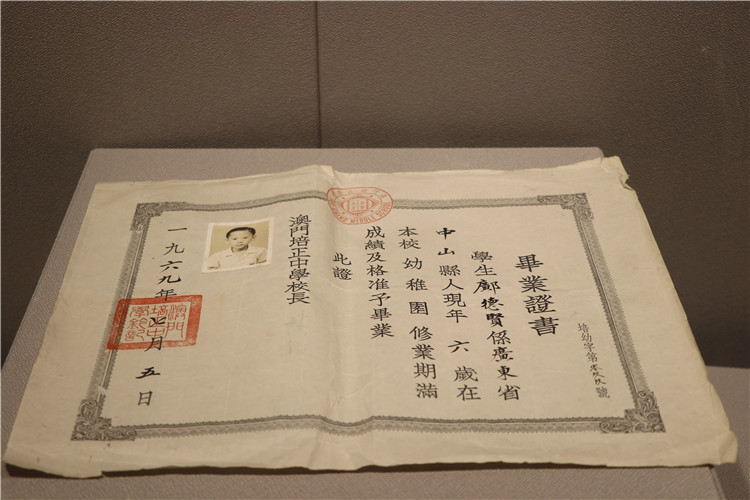 畢業證書
培幼字第號
學生鄺德賢係廣東省
中山縣人現年六歲在
本校幼稚園修業期滿
成績及格准予畢業
此證
澳門培正中學校長
一九六九年七月五日
MIDDLE SCHOOL